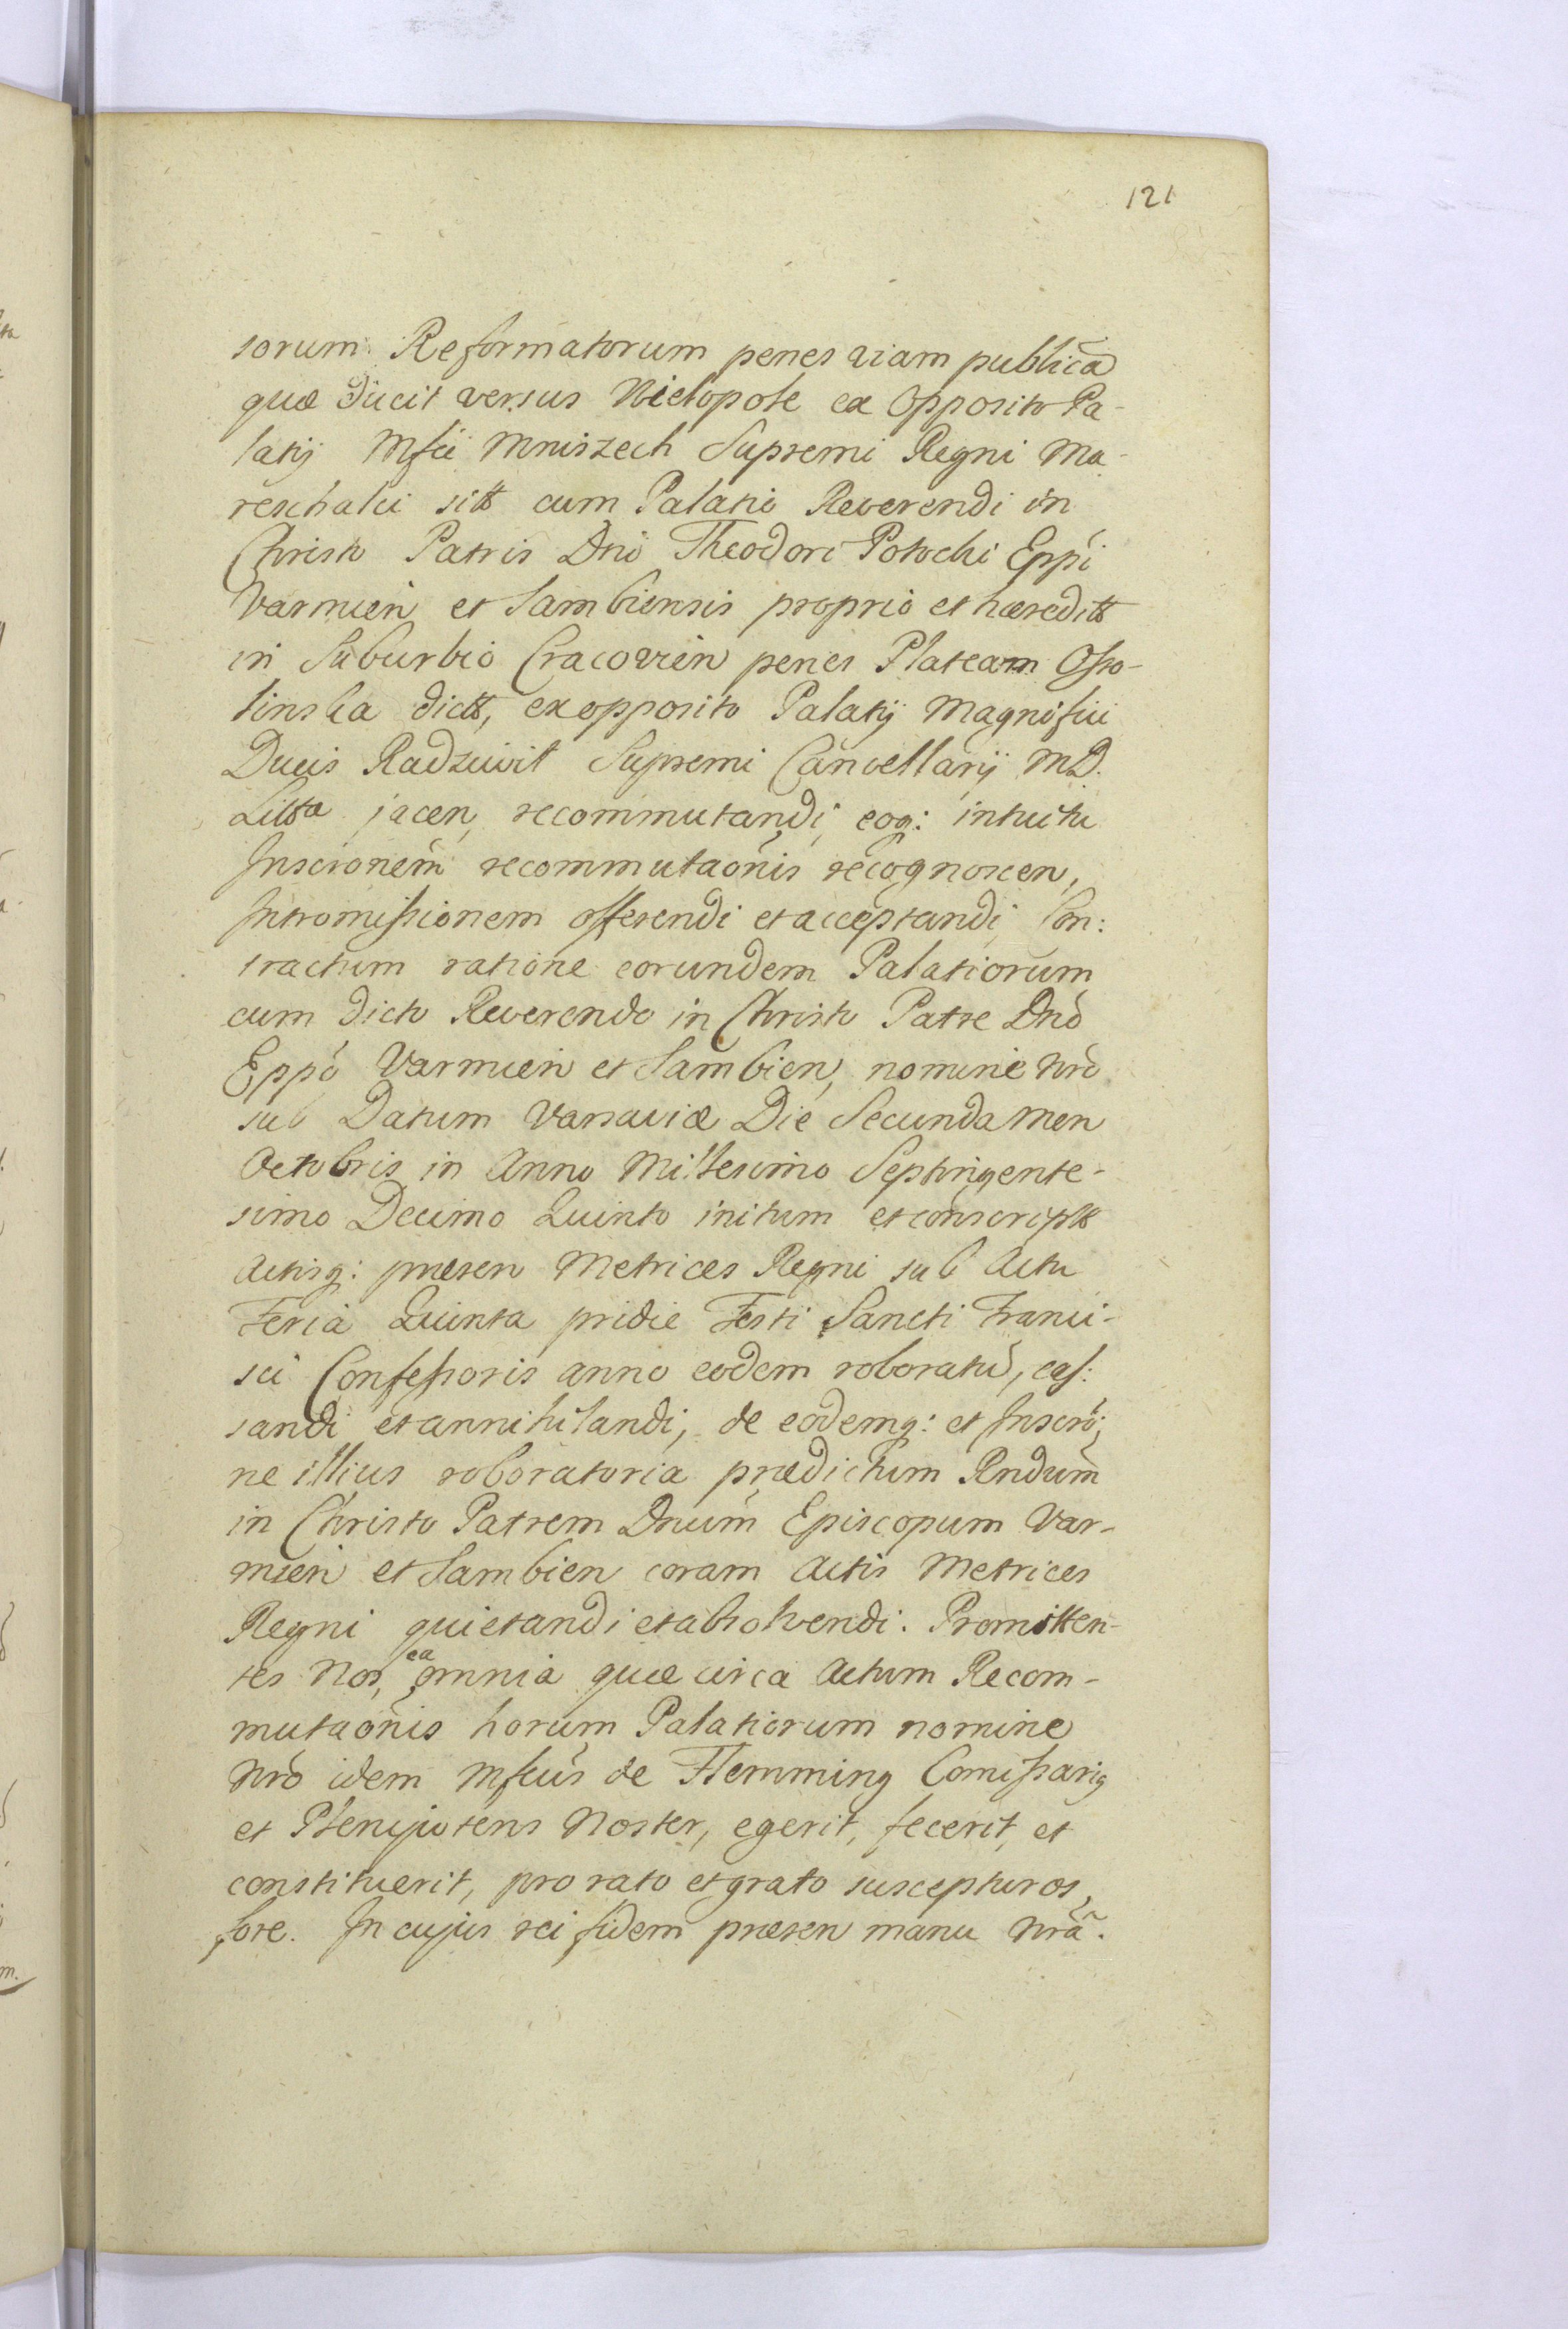 121
sorum Reformatorum penes viam publicã
quæ ducit versus Wielopole ex Opposito Pa-
latij Mfci Mniszech Supremi Regni Ma-
reschalci sitt cum Palatio Reverendi in
Christo Patris Dni Theodori Potocki Eppi
Varmien et Sambiensis proprio et hæreditt
in Suburbio Cracovien penes Plateam Osso-
linska dictt, ex opposito Palatij Magnifici
Ducis Radziwil Supremi Cancellarij M.D.
Litta jacen, recommutandi, eoq: intuitu
Inscrionem recommutaonis recognoscen,
Intromissionem offerendi et acceptandi, Con:
tractum ratione eorundem Palatiorum
cum dicto Reverendo in Christo Patre Dno
Eppo Varmien et Sambien, nomine Nro
sub Datum Varsaviæ Die Secunda Men
Octobris in Anno Millesimo Septingente-
simo Decimo Quinto initum et conscriptt
Actisq: præsen Metrices Regni sub Actu
Feria Quinta pridie Festi Sancti Franci-
sci Confessoris anno eodem roboratũ, cas:
sandi et annihilandi, de eodemq: et Inscrõ:
ne illius roboratoria prædictum Rndum
in Christo Patrem Dnum Episcopum Var-
mien et Sambien coram Actis Metrices
Regni quietandi et absolvendi. Promitten-
tes Nos, ea omnia quæ circa Actum Recom-
mutaonis horum Palatiorum nomine
Nro idem Mfcus de Flemming Comissariq
et Plenipotens Noster, egerit, fecerit, et
constituerit, pro rato et grato suscepturos,
fore. In cujus rei fidem præsen manu Nrã.